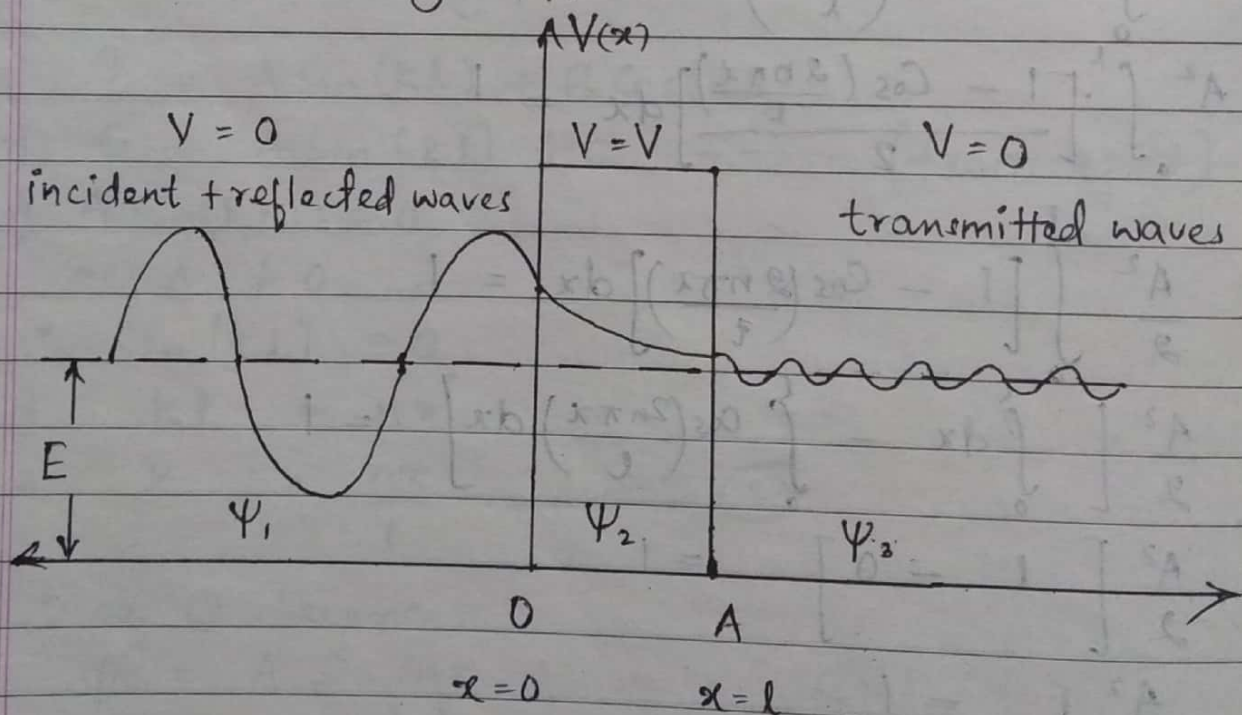 V(x)
V = 0
V = V
V = 0
incident + reflected waves
transmitted waves
E
Ψ₁
Ψ₂
Ψ₃
O
A
x = 0
x = l